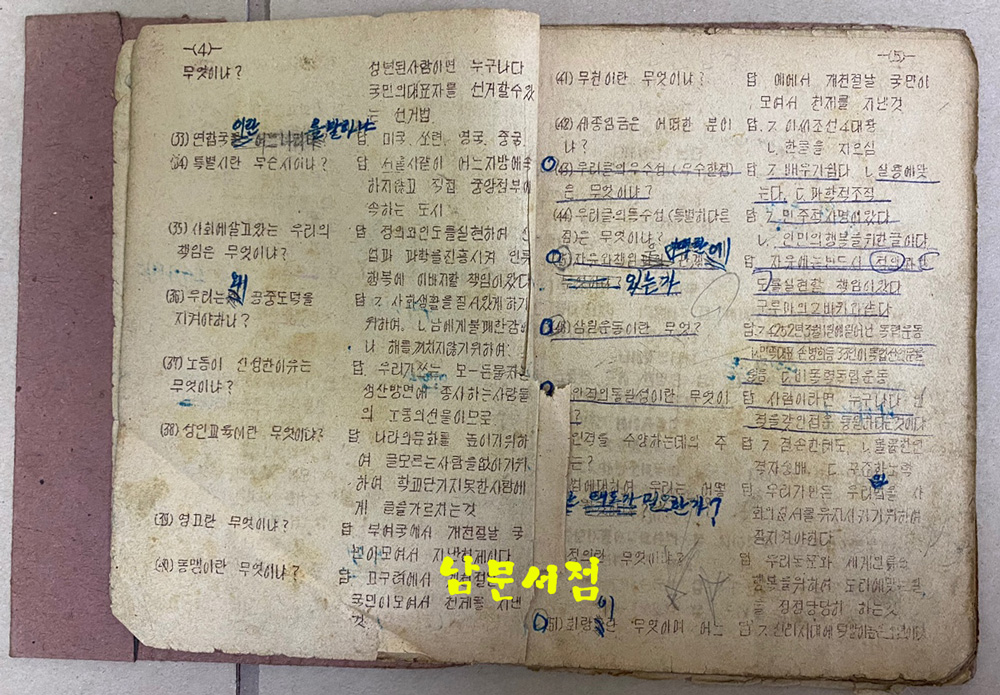 -(4)-
무엇이냐?
성년된사람이면 누구나다
국민의대표자를 선거할수있
는 선거법
(33) 연합국
이란
을말하냐
답 미국. 쏘련. 영국. 중국.
(34) 특별시란 무슨시이냐?
답 서울시같이 어느지방에속
하지않고 직접 중앙정부에
속하는 도시
(35) 사회에살고있는 우리의
책임은 무엇이냐?
답 정의와인도를실현하며 산
업과 과학을진흥시켜 인류
행복에 이바지할 책임이있다
(36) 우리는 왜 공중도덕을
지켜야하냐?
답 ㄱ. 사회생활을질서있게하기
위하여. ㄴ. 남에게불쾌한감이
나 해를끼치지않기위하여.
(37) 노동이 신성한이유는
무엇이냐?
답 우리가쓰는 모-든물자는
생산방면에 종사하는사람들
의 노동의선물이므로
(38) 성인교육이란 무엇이냐?
답 나라의문화를 높이기위하
여 글모르는사람을없이기위
하여 학교단기지못한사람에
게 글을가르치는것
(39) 영고란 무엇이냐?
답 부여국에서 개천절날 국
민이모여서 지낸천제이다
(40) 동맹이란 무엇이냐?
답 고구려에서 개천절
국민이모여서 천제를 지낸
것
-(5)-
(41) 무천이란 무엇이냐?
답 예에서 개천절날 국민이
모여서 천제를 지낸것
(42) 세종임금은 어떠한 분이
냐?
답 ㄱ. 이씨조선4대왕
ㄴ. 한글을 지으심
(43) 우리글의우수성(우수한점)
은 무엇이냐?
답 ㄱ. 배우기쉽다 ㄴ. 실용에맞
는다. ㄷ. 과학적조직
(44) 우리글의특수성(특별히다른
점)은 무엇이냐?
답 ㄱ. 민주적사명이있다
ㄴ. 인민의행복을위한글이다
자유와책임
에
있는가
답 자유에는반드시 정의와인
도를실현할 책임이있다
삼일운동이란 무엇?
답. ㄱ. 4252년3월1일에일어난 독립운동
인격의동일성이란 무엇이
?
답 사람이라면 누구나다
인격을 수양하는데의 주
는?
답 ㄱ. 겸손한태도. ㄴ. 훌륭한인
격자숭배. ㄷ. 꾸준한노력
에대하여 우리는 어떻
태도가 필요한가?
답 우리가만든 우리법을 사
회의질서를 유지시키기위하여
꼭지켜야한다
정의란 무엇이냐?
답 우리는문화 세계인류의
행복을위하여 도리에맞는일
을 정정당당히 하는것
(51) 화랑 이란 무엇이며 어느
답 ㄱ. 신라시대에
남문서점